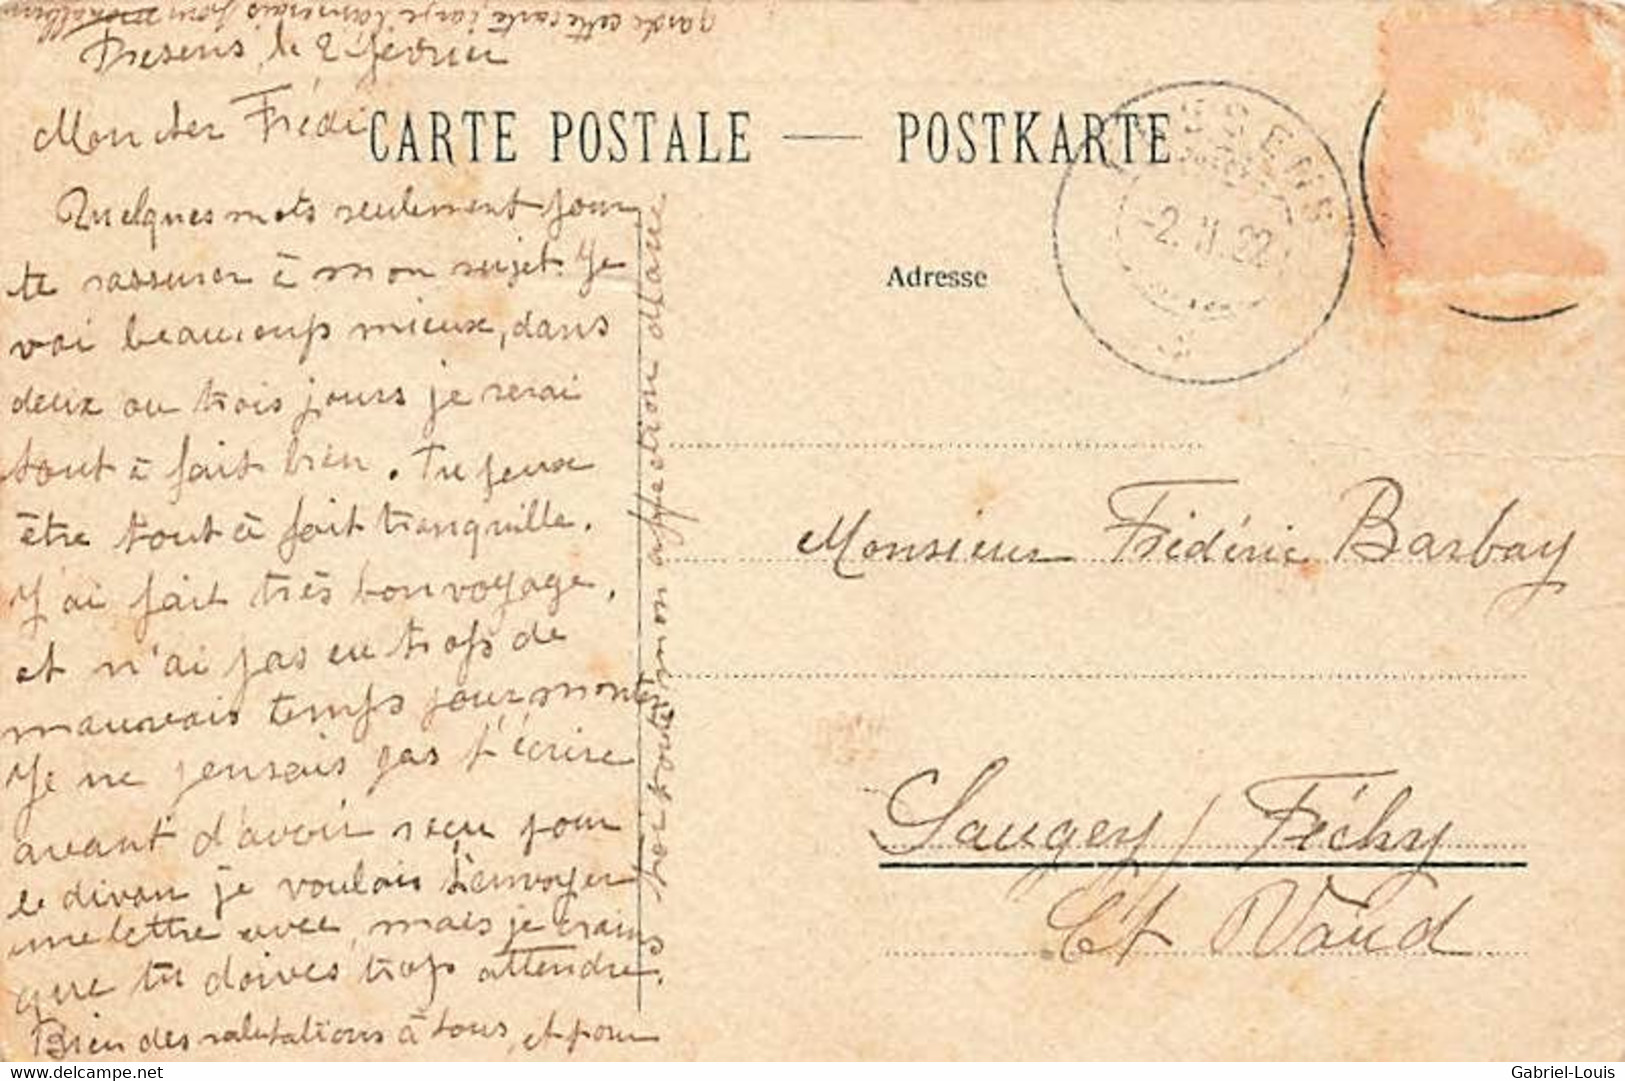 garde cette carte, j'aurais pour mon album
Bresens, le 2 février
Mon cher Frédi
CARTE POSTALE — POSTKARTE
Quelques mots seulement pour
te rassurer à mon sujet. Je
vai beaucoup mieux, dans
deux ou trois jours je serai
tout à fait bien. Tu peux
être tout à fait tranquille.
J'ai fait très bon voyage,
et n'ai pas eu trop de
mauvais temps pour monter
Je ne pensais pas t'écrire
avant d'avoir reçu pour
le divan je voulais t'envoyer
une lettre avec, mais je crains
que tu doives trop attendre.
Bien des salutations à tous, et pour
toi toute mon affection diane
Adresse
-2.II.22
Monsieur Frédéric Barbay
Saugey / Féchy
Ct Vaud
https://www.delcampe.net
Gabriel-Louis